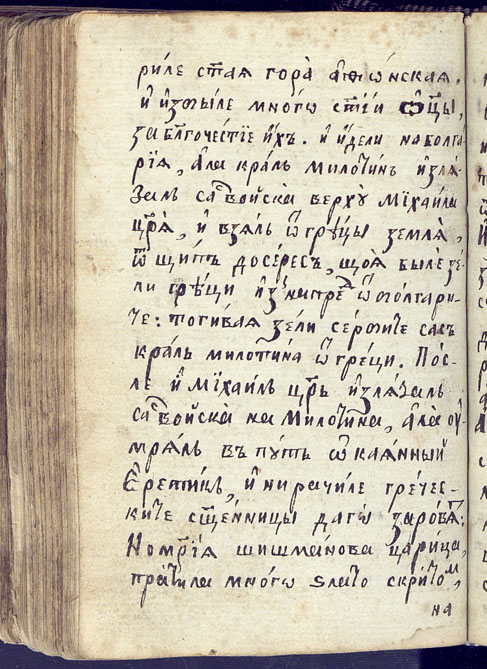 риле ст҃ая гора̀ аѳѡ́нская,
и҆ и҆змы́ле много ст҃їи ѻц҃ы,
за бл҃гоче́стїе и҆́хъ. и҆ и҆дели на болга́-
рїя, а҆ла кра́ль милоти́нъ и҆зля́-
заль са во́йска верхꙋ̀ мїхаи́ла
цр҃я, и҆ взяль ѿ грѣ́цы земля̀,
ѿ щипъ до се́ресъ, що̀я были взе́-
ли грѣ́цы и҆з̾ напре́д ѿ болгари-
те: тогива́я взели се́рбите съсъ
кра́ль милоти́на ѿ гре́ци. По́с-
ле и҆ мїхаи́ль цр҃ь и҆зля́заль
са во́йска на Милоти́на, а҆ла ᲂу҆-
мря́ль въ пꙋ́ть ѻ҆кая́нный
Є҆рети́къ, и҆ ни рачи́ле гре́чес-
ките сщ҃е́нницы да гѡ заробѧ́тъ:
Но мр҃і́я шишма́нова цари́ца,
пра́тила мно́гѡ ѕлато скри́томъ,
на